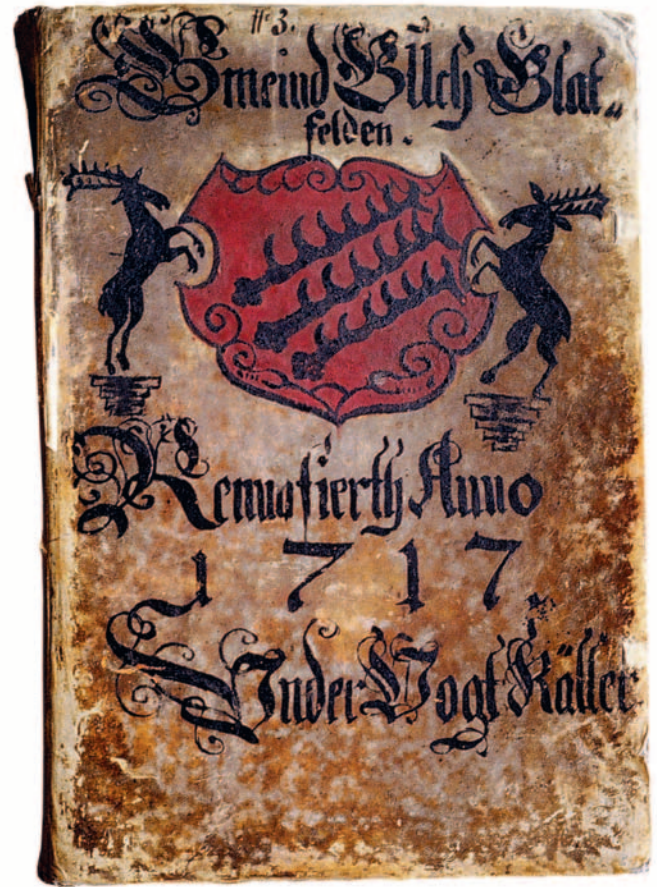 # 3.
Gmeind Buch Glat„
felden.
Renuofierth Anno
1717
Vnder Vogt Käller